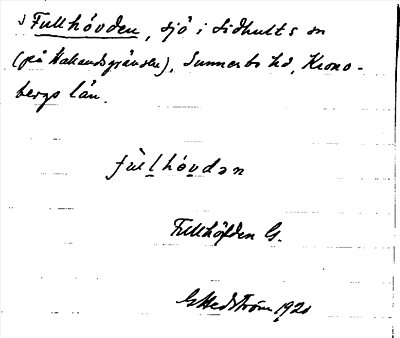 Fullhövden, sjö i Lidhults sn
(på Hallandsgränsen), Sunnerbo hd, Krono-
bergs län.
fùlhövdən
Fullhöfden G.
G Hedström 1920